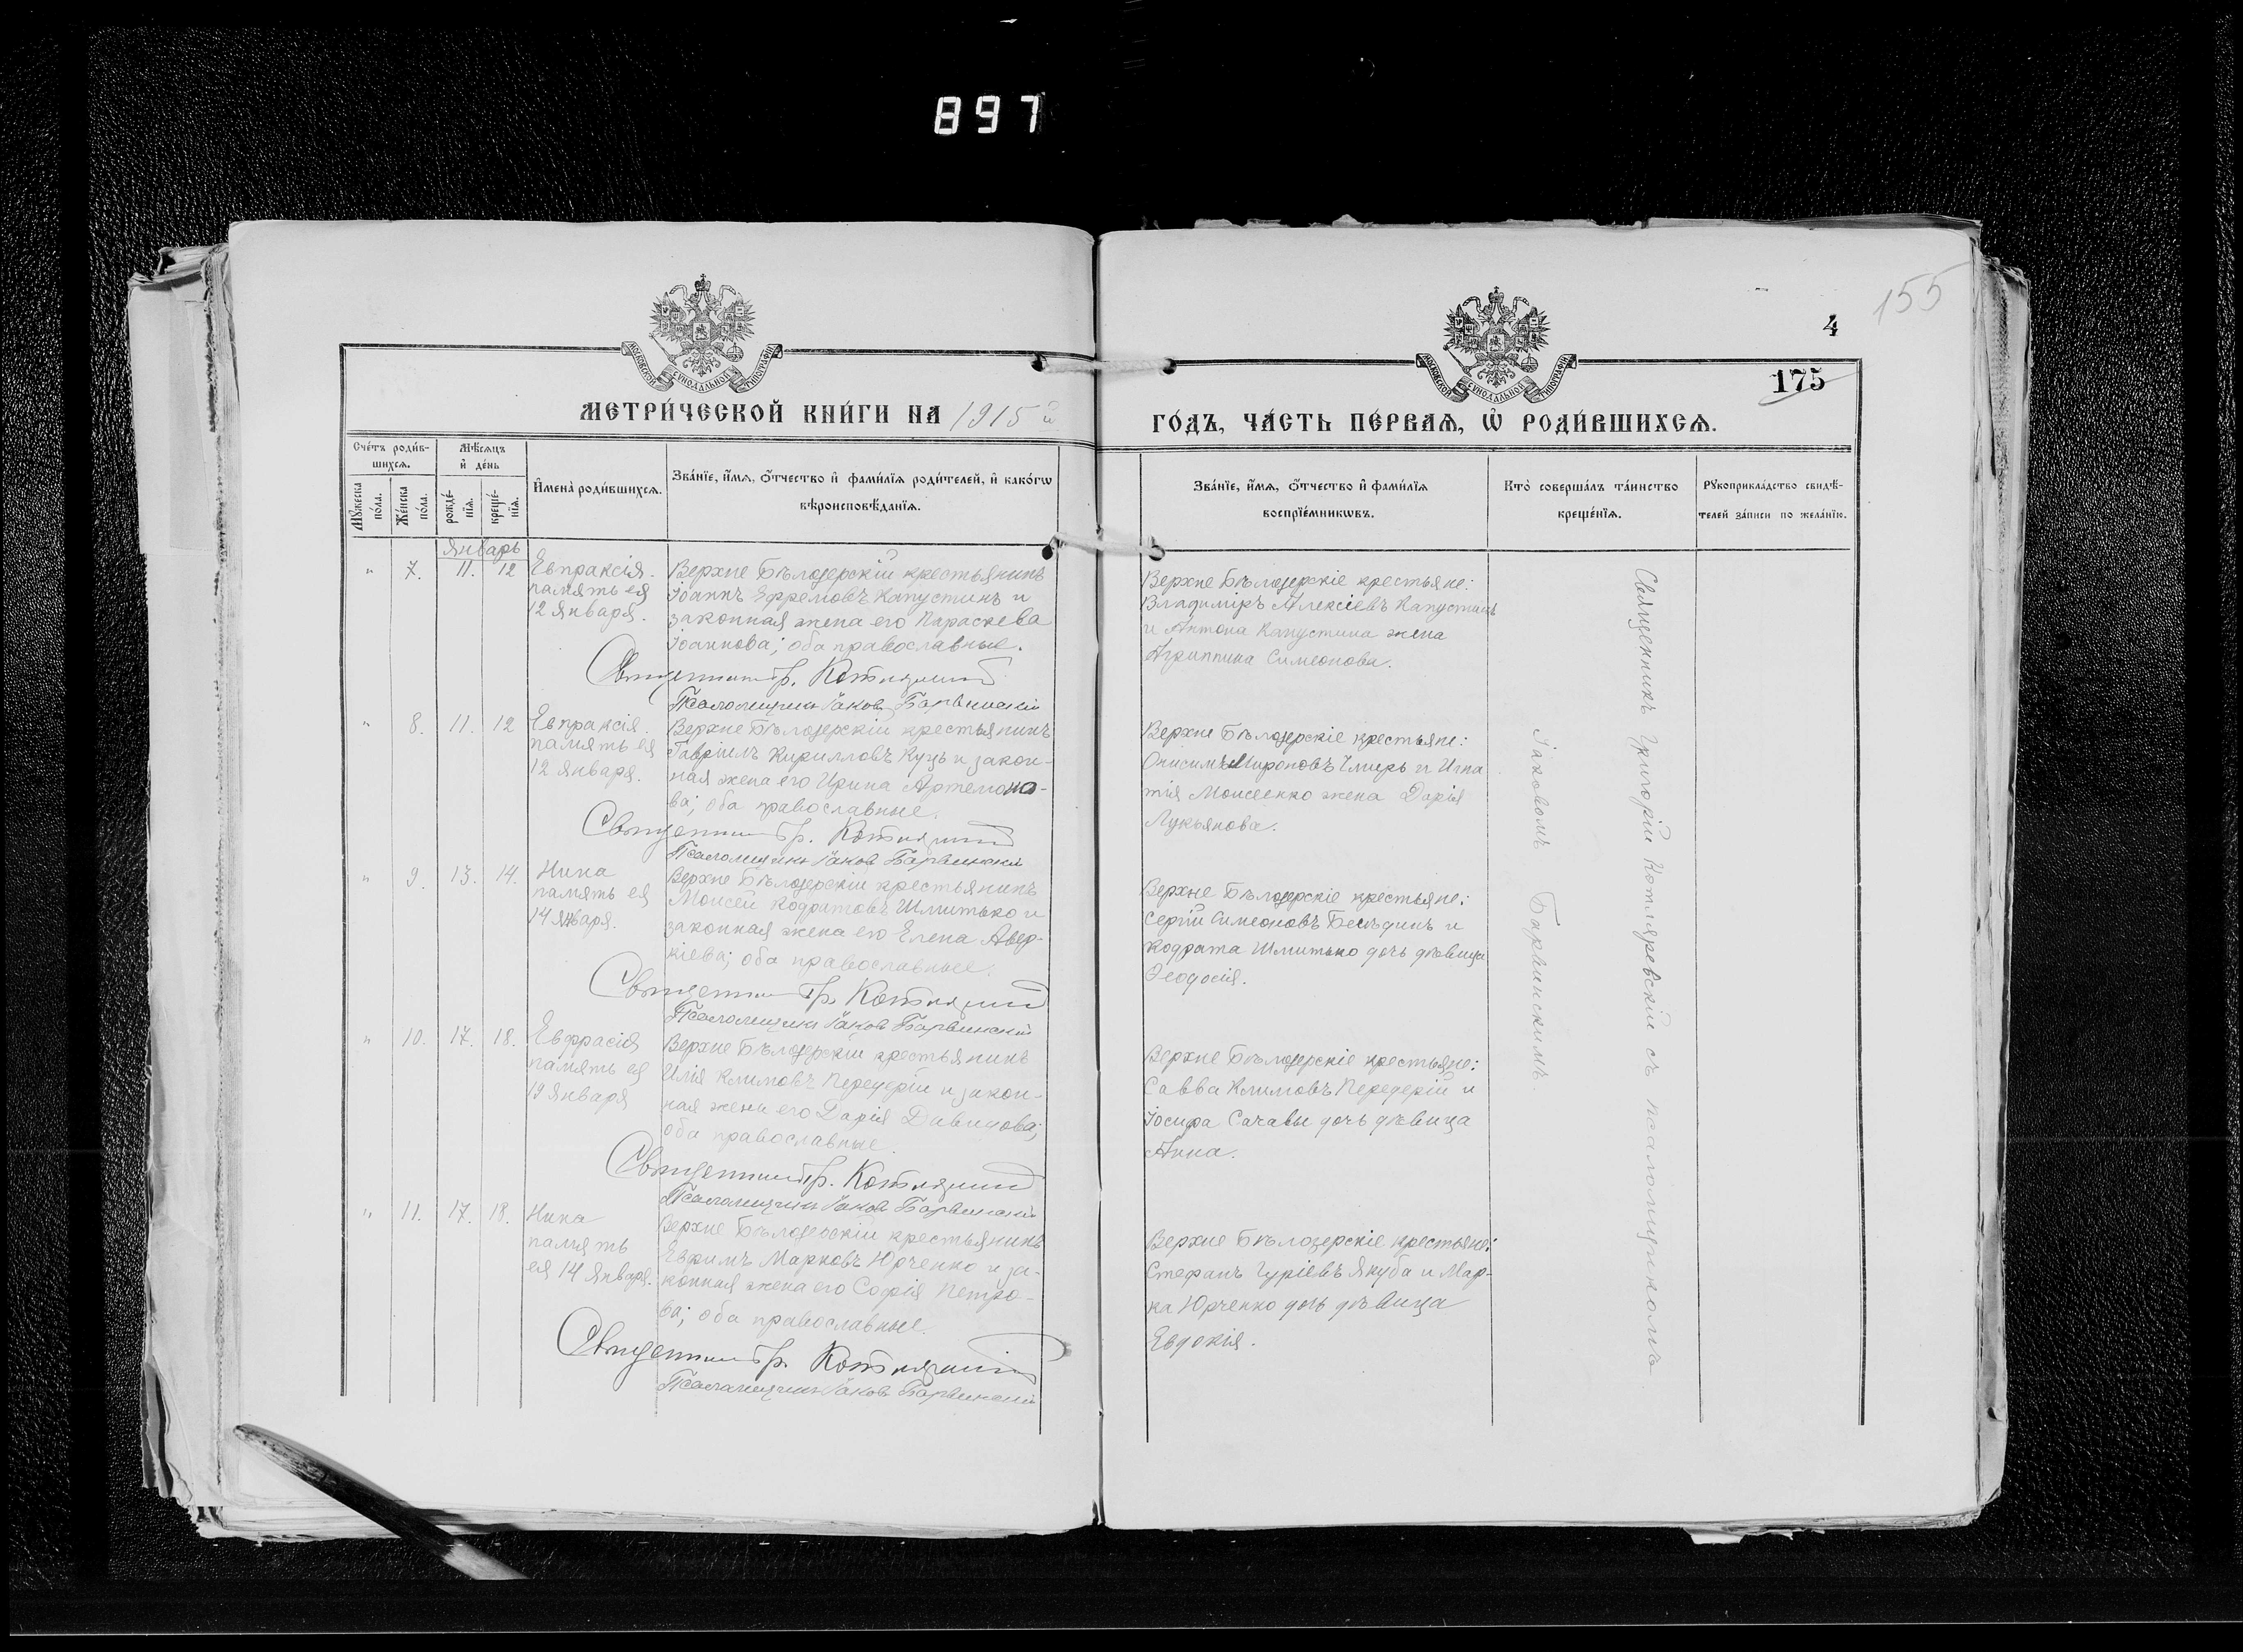 897
155
4
175
МОСКОВСКОЙ СѴНОДАЛЬНОЙ ТИПОГРАФІИ
МОСКОВСКОЙ СѴНОДАЛЬНОЙ ТИПОГРАФІИ
МЕТРИ́ЧЕСКОЙ КНИ́ГИ НА 1915 й
ГО́ДЪ, ЧА́СТЬ ПЕ́РВАѦ, Ѡ҆ РОДИ́ВШИХСѦ.
Сче́тъ роди́в-
шихсѧ.
Мѣ́сѧцъ
и҆ де́нь
Мꙋ́жеска
по́ла.
Же́нска
по́ла.
рожде́-
нїѧ.
креще́-
нїѧ.
И҆мена̀ роди́вшихсѧ.
Зва́нїе, и҆́мѧ, ѻ҆́тчество и҆ фами́лїѧ роди́телей, и҆ како́гѡ
вѣроисповѣ́данїѧ.
Зва́нїе, и҆́мѧ, ѻ҆́тчество и҆ фами́лїѧ
воспрїе́мникѡвъ.
Кто̀ соверша́лъ та́инство
креще́нїѧ.
Рꙋкоприкла́дство свидѣ́-
телей за́писи по жела́нїю.
Январь
" 7. 11. 12
Евпраксія.
память ея
12 января.
Верхне Бѣлозерскій крестьянинъ
Іоаннъ Ефремовъ Капустинъ и
законная жена его Параскева
Іоаннова; оба православные.
Священникъ Гр. Котляревскій
Псаломщикъ Іаковъ Барвинскій
Верхне Бѣлозерскіе крестьяне:
Владиміръ Алексіевъ Капустинъ
и Антона Капустина жена
Агриппина Симеонова.
" 8. 11. 12
Евпраксія.
память ея
12 января.
Верхне Бѣлозерскій крестьянинъ
Гавріилъ Кирилловъ Куць и закон-
ная жена его Ирина Артемоно-
ва; оба православные.
Священникъ Гр. Котляревскій
Псаломщикъ Іаковъ Барвинскій
Верхне Бѣлозерскіе крестьяне:
Онисимъ Мироновъ Чмирь и Игна
тія Моисеенко жена Дарія
Лукьянова.
" 9. 13. 14.
Нина
память ея
14 января.
Верхне Бѣлозерскій крестьянинъ
Моисей Кодратовъ Шмитько и
законная жена его Елена Авер-
кіева; оба православные.
Священникъ Гр. Котляревскій
Псаломщикъ Іаковъ Барвинскій
Верхне Бѣлозерскіе крестьяне:
Сергій Симеоновъ Бесѣдинъ и
Кодрата Шмитько дочь дѣвица
Ѳеодосія.
" 10. 17. 18.
Евфрасія
память ея
19 января
Верхне Бѣлозерскій крестьянинъ
Илія Климовъ Передерій и закон-
ная жена его Дарія Давидова;
оба православные.
Священникъ Гр. Котляревскій
Псаломщикъ Іаковъ Барвинскій
Верхне Бѣлозерскіе крестьяне:
Савва Климовъ Передерій и
Іосифа Сачавы дочь дѣвица
Анна.
" 11. 17. 18.
Нина
память
ея 14 января.
Верхне Бѣлозерскій крестьянинъ
Евфимъ Марковъ Юрченко и за-
конная жена его Софія Петро-
ва; оба православные.
Священникъ Гр. Котляревскій
Псаломщикъ Іаковъ Барвинскій
Верхне Бѣлозерскіе крестьяне:
Стефанъ Гуріевъ Якуба и Мар-
ка Юрченко дочь дѣвица
Евдокія.
Священникъ Григорій Котляревскій съ псаломщикомъ
Іаковомъ Барвинскимъ.